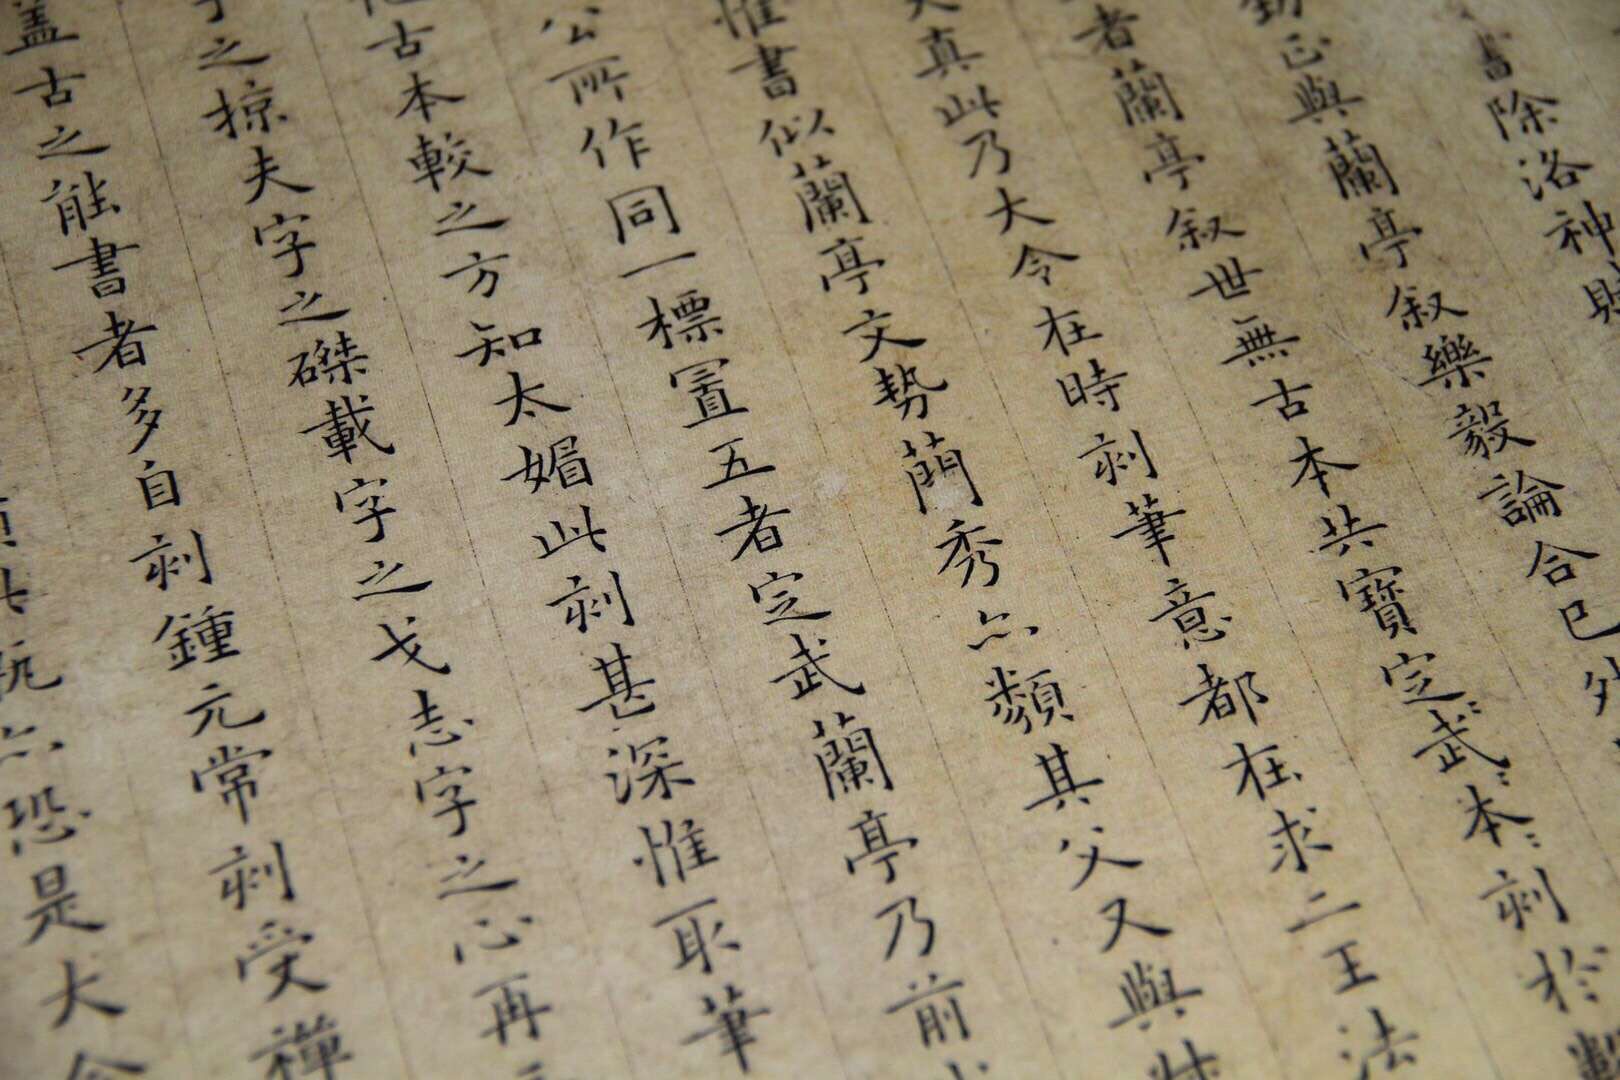 書除洛神
與蘭亭叙樂毅論合已
者蘭亭叙世無古本共寶定武本刻於
真此乃大令在時刻筆意都在求二王法
惟書似蘭亭文勢蕳秀亦類其父又與
公所作同一標置五者定武蘭亭乃前
古本較之方知太媚此刻甚深惟取筆
之掠夫字之磔載字之戈志字之心再
蓋古之能書者多自刻鍾元常刻受禪
亦恐是大令